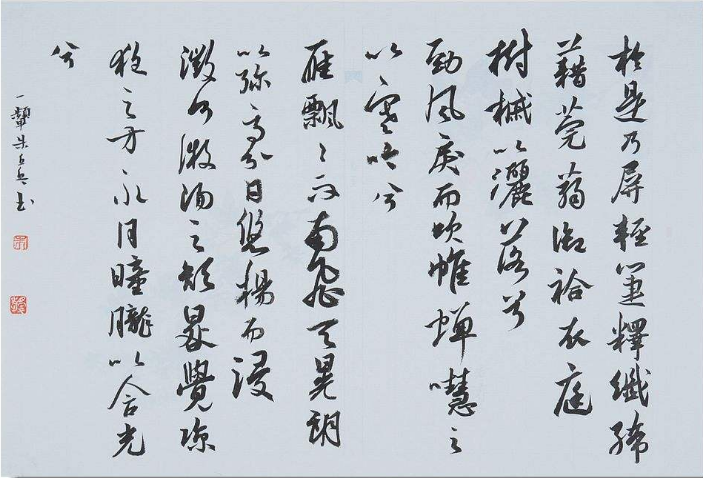 於是乃屏輕箑釋纖絺
藉莞蒻御袷衣庭
樹槭以灑落兮
勁風戾而吹帷蟬嘒々
以寒吟兮
雁飄々而南飛天晃朗
以彌高兮日悠揚而浸
微何微陽之短晷覺涼
夜之方永月曈朧以含光
兮